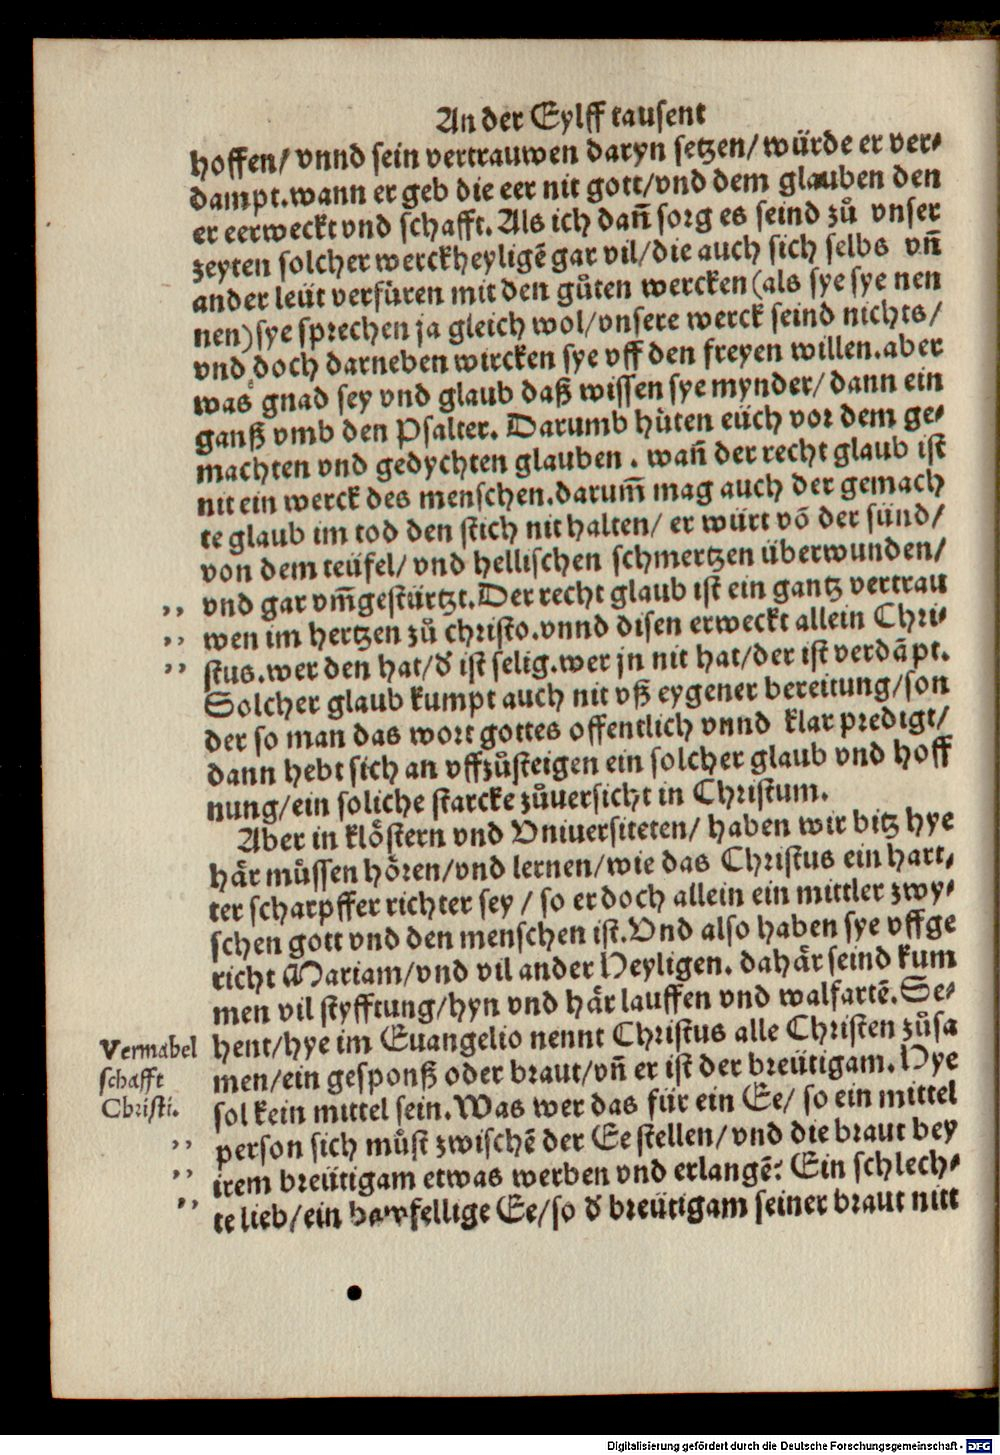 An der Eylff tausent
hoffen/ vnnd sein vertrauwen daryn setzen/ würde er ver⸗
dampt.wann er geb die eer nit gott/vnd dem glauben den
er eerweckt vnd schafft. Als ich dañ sorg es seind zů vnser
zeyten solcher werckheyligẽ gar vil/die auch sich selbs vñ
ander leüt verfüren mit den gůten wercken(als sye sye nen
nen)sye sprechen ja gleich wol/vnsere werck seind nichts/
vnd doch darneben wircken sye vff den freyen willen.aber
was gnad sey vnd glaub daß wissen sye mynder/ dann ein
ganß vmb den Psalter. Darumb hüten eüch vor dem ge⸗
machten vnd gedychten glauben . wañ der recht glaub ist
nit ein werck des menschen.darum̃ mag auch der gemach
te glaub im tod den stich nit halten/ er würt võ der sünd/
von dem teüfel/ vnd hellischen schmertzen überwunden/
,, vnd gar vm̃gestürtzt.Der recht glaub ist ein gantz vertrau
,, wen im hertzen zů christo.vnnd disen erweckt allein Chri⸗
,, stus.wer den hat/đ ist selig.wer jn nit hat/der ist verdãpt.
Solcher glaub kumpt auch nit vß eygener bereitung/son
der so man das wort gottes offentlich vnnd klar predigt/
dann hebt sich an vffzůsteigen ein solcher glaub vnd hoff
nung/ein soliche starcke zůuersicht in Christum.
Aber in klöstern vnd Vniuersiteten/ haben wir bitz hye
här müssen hören/vnd lernen/wie das Christus ein hart⸗
ter scharpffer richter sey / so er doch allein ein mittler zwy⸗
schen gott vnd den menschen ist.Vnd also haben sye vffge
richt Mariam/vnd vil ander Heyligen. dahär seind kum
men vil styfftung/hyn vnd här lauffen vnd walfartẽ.Se⸗
hent/hye im Euangelio nennt Christus alle Christen zůsa
men/ein gesponß oder braut/vñ er ist der breütigam. Hye
sol kein mittel sein.Was wer das für ein Ee/ so ein mittel
,, person sich můst zwischẽ der Ee stellen/vnd die braut bey
,, irem breütigam etwas werben vnd erlangẽ: Ein schlech⸗
,, te lieb/ein bawfellige Ee/so đ breütigam seiner braut nitt
Vermabel
schafft
Christi.
Digitalisierung gefördert durch die Deutsche Forschungsgemeinschaft - DFG